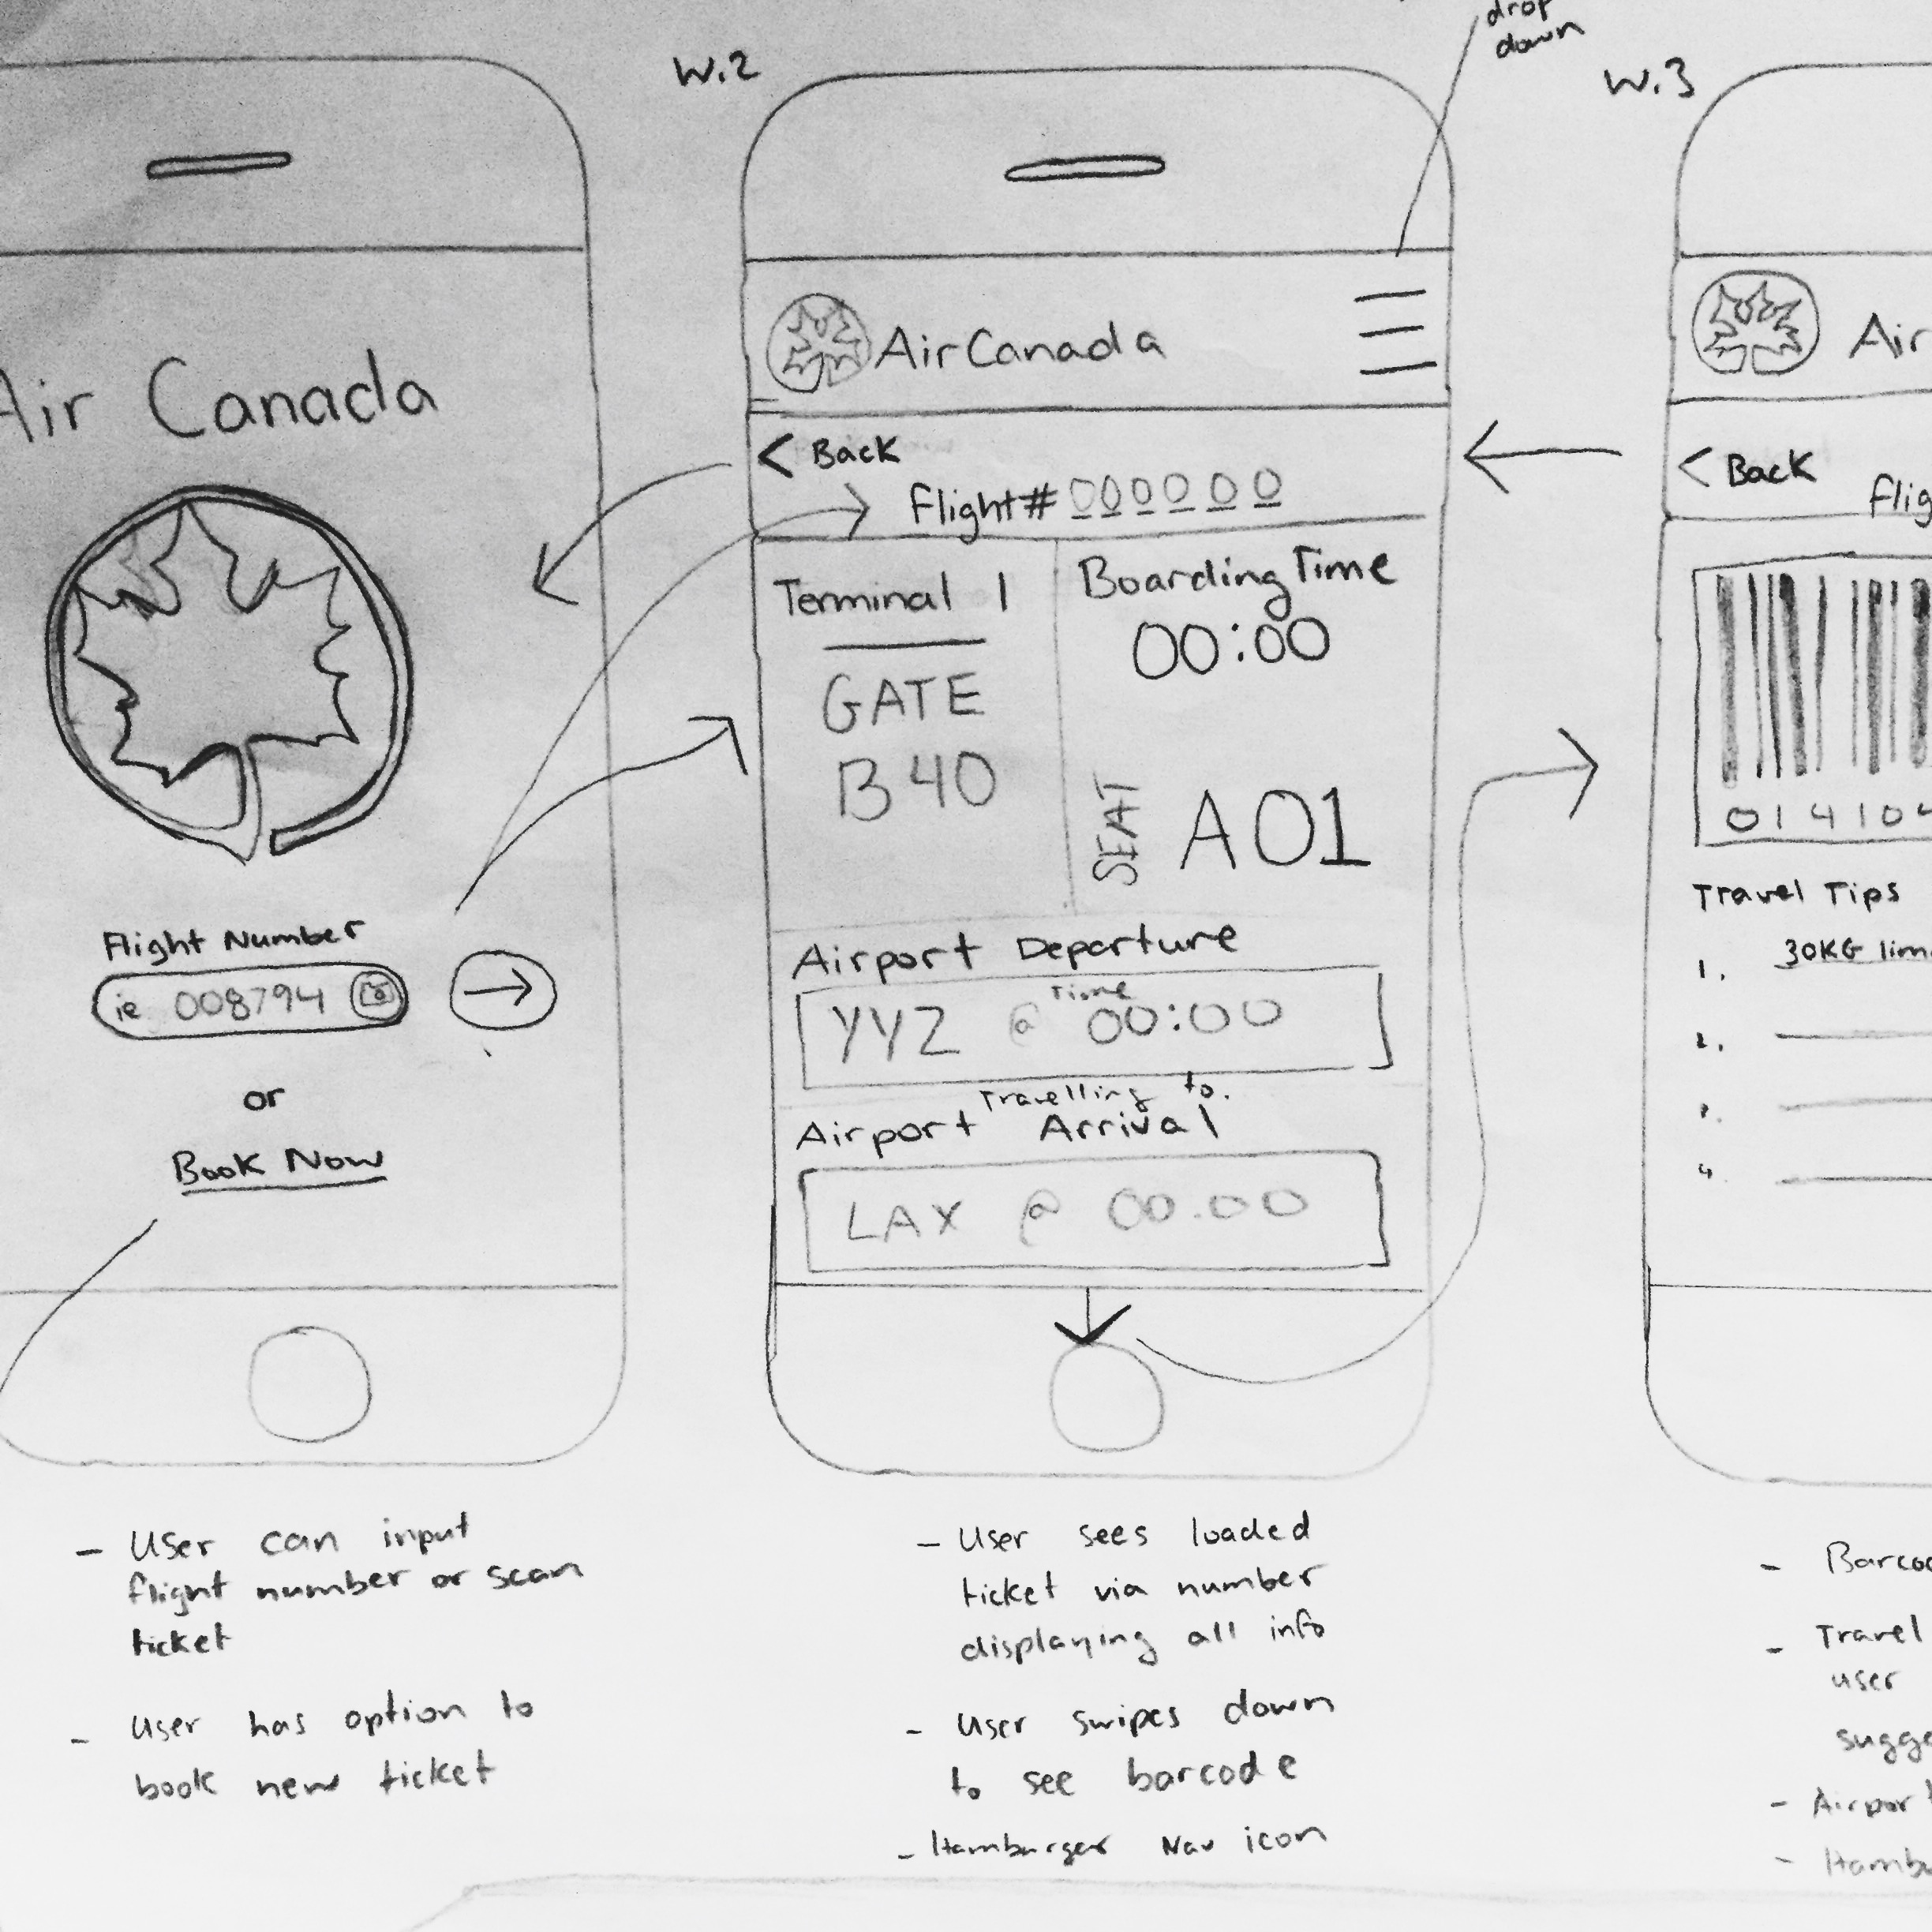 Air Canada
Flight Number
ie 008794
or
Book Now
- User can input
flight number or scan
ticket
- User has option to
book new ticket
W.2
drop
down
Air Canada
< Back
Flight# 000000
Terminal 1
GATE
B40
Boarding Time
00:00
SEAT
A01
Airport Departure
Time
YYZ @ 00:00
Travelling to.
Airport Arrival
LAX @ 00.00
- User sees loaded
ticket via number
displaying all info
- User swipes down
to see barcode
- Hamburger Nav icon
W.3
Air
< Back
Flig
01410
Travel Tips
1. 30KG lim
2.
3.
4.
- Barco
- Travel
user
sugge
- Airport
- Hambu